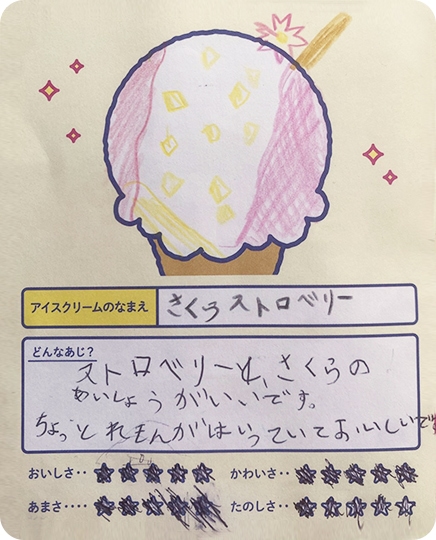 アイスクリームのなまえ
さくらストロベリー
どんなあじ?
ストロベリーと、さくらの
あいしょうがいいです。
ちょっとれもんがはいっていておいしいです
おいしさ‥
かわいさ‥
あまさ‥‥
たのしさ‥